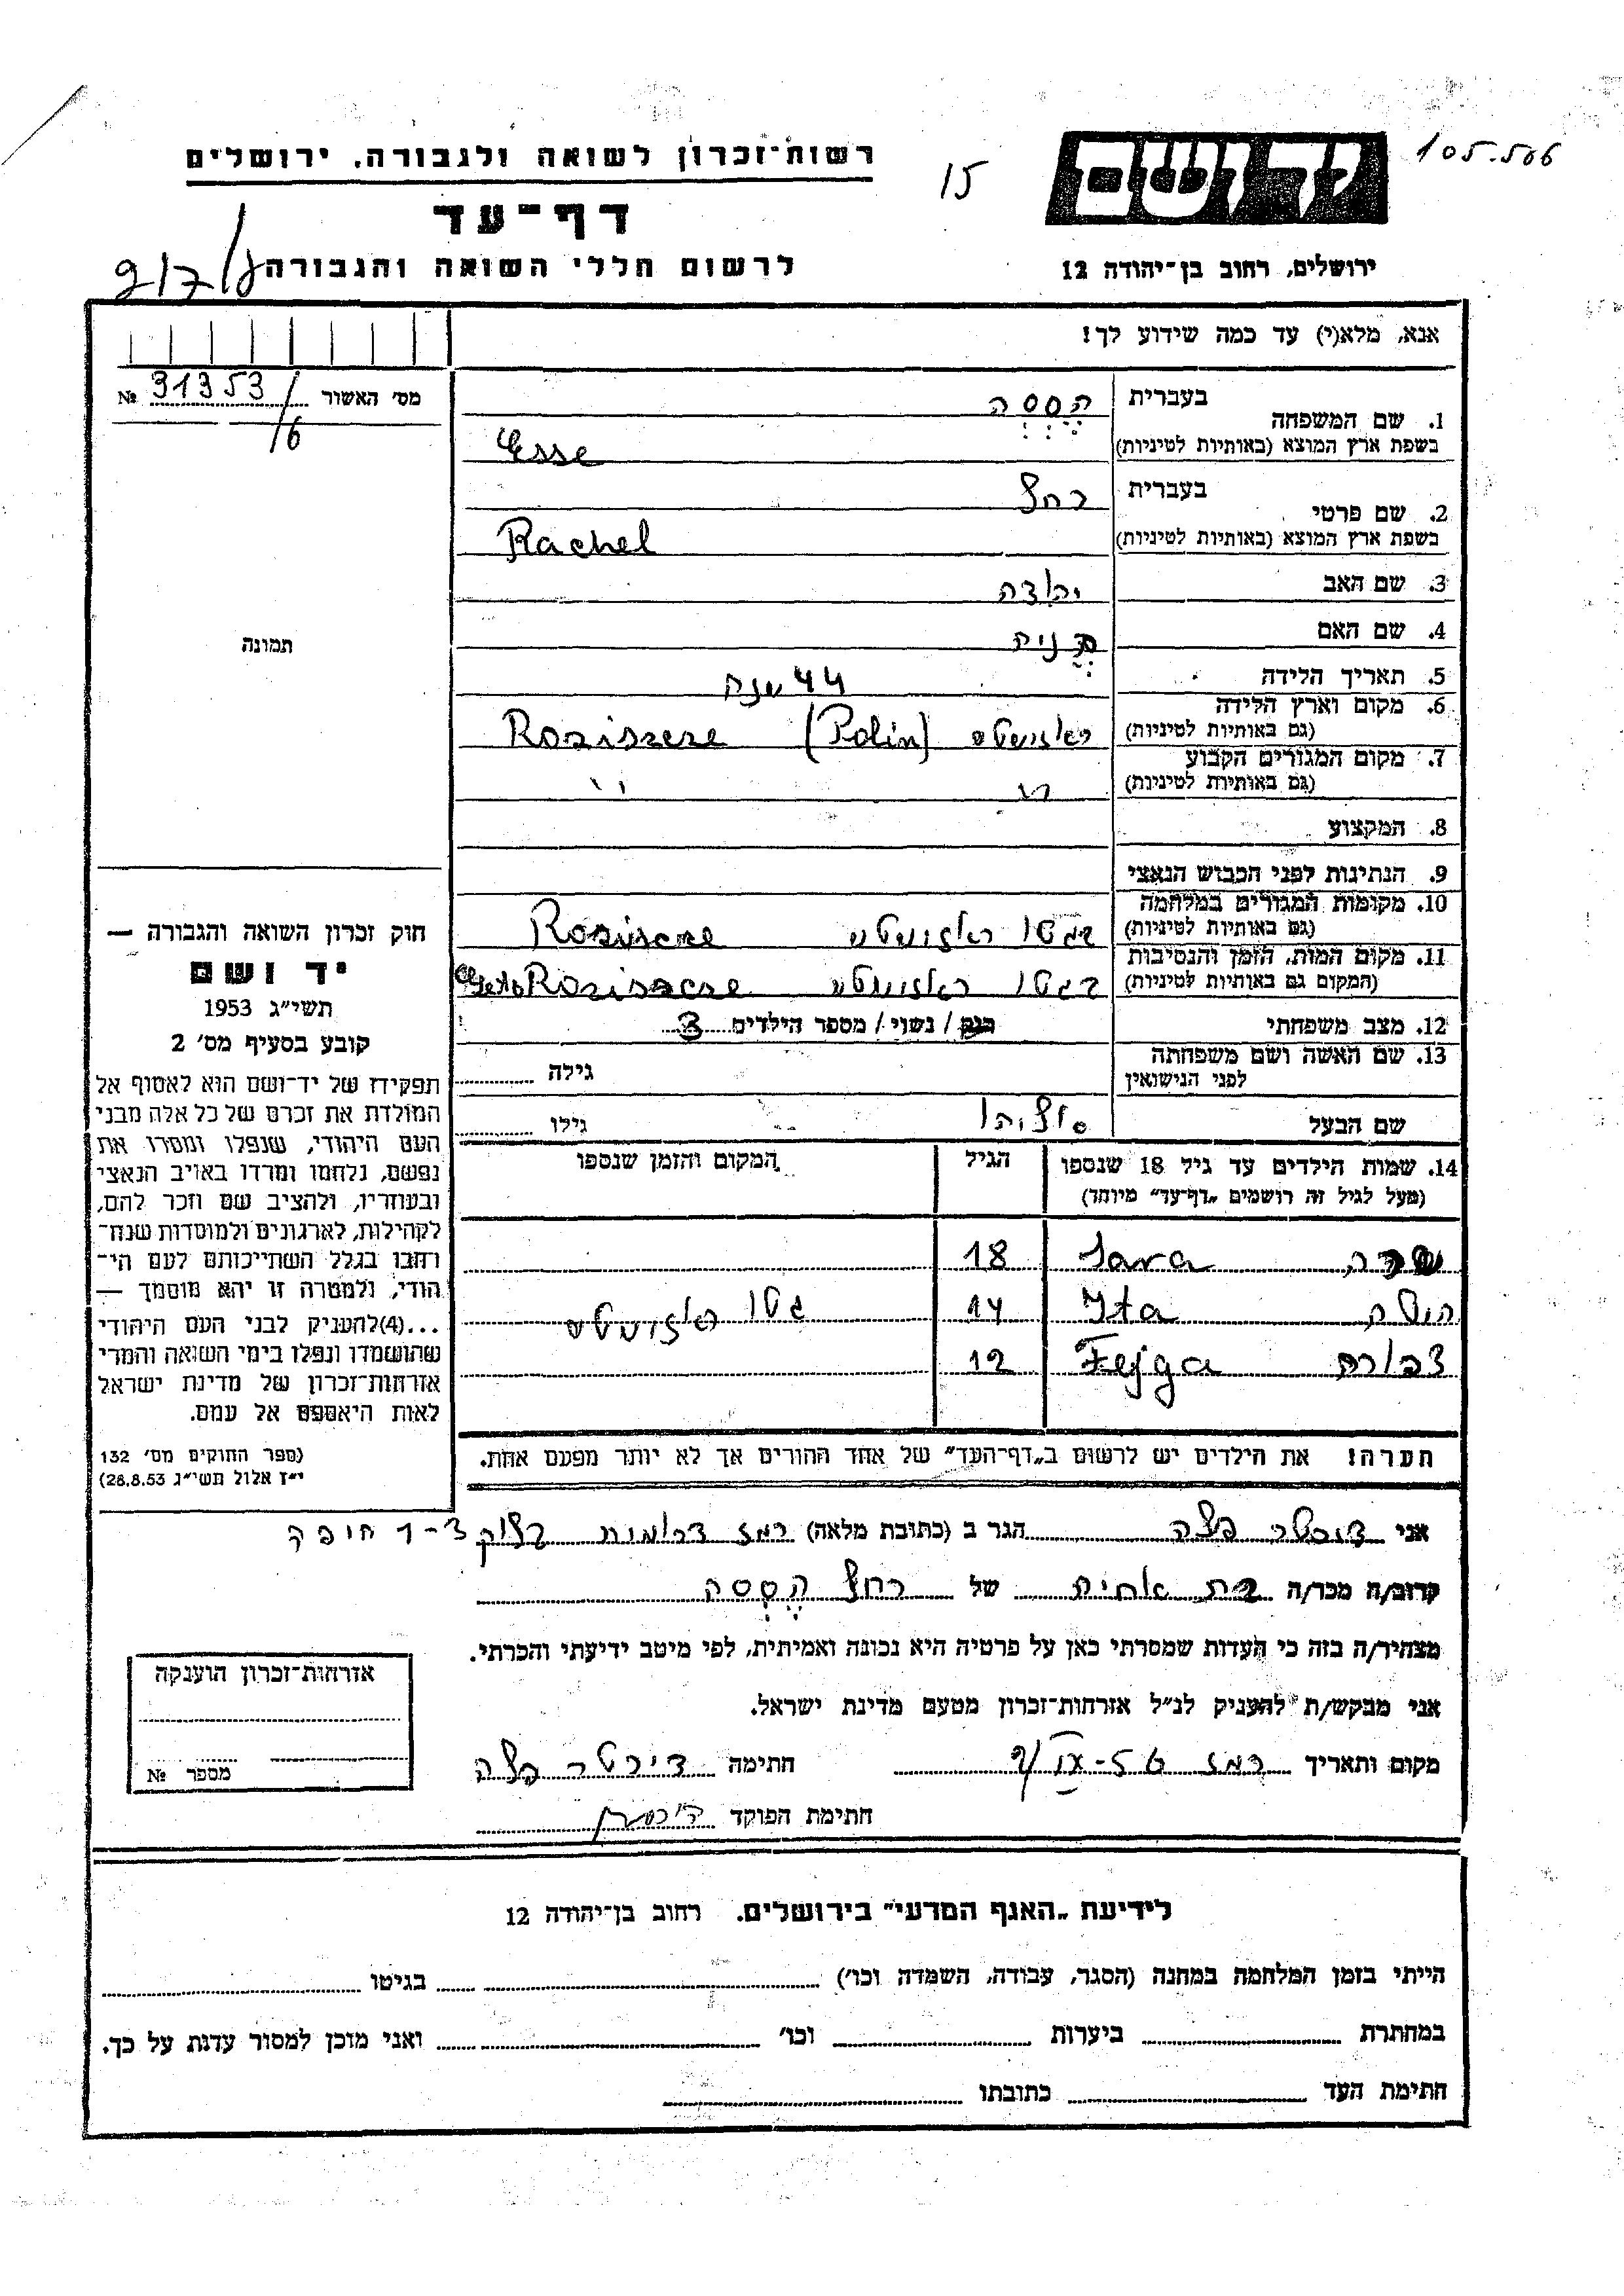 105.566
15
ידושם
רשות־זכרון לשואה ולגבורה, ירושלים
דף־עד
לרשום חללי השואה והגבורה
ירושלים, רחוב בן־יהודה 12
אנא, מלא(י) עד כמה שידוע לך!
מס׳ האשור № 31353/16
תמונה
1. שם המשפחה
בעברית הֶסְסֶה
בשפת ארץ המוצא (באותיות לטיניות) Esse
2. שם פרטי
בעברית רחל
בשפת ארץ המוצא (באותיות לטיניות) Rachel
3. שם האב יהודה
4. שם האם
5. תאריך הלידה 44 שנה
6. מקום וארץ הלידה
(גם באותיות לטיניות) (Polin)
7. מקום המגורים הקבוע
(גם באותיות לטיניות) " "
8. המקצוע
9. הנתינות לפני הכבוש הנאצי
10. מקומות המגורים במלחמה
(גם באותיות לטיניות) בגטו
11. מקום המות, הזמן והנסיבות
(המקום גם באותיות לטיניות) בגטו
12. מצב משפחתי רווק / נשוי / מספר הילדים 3
13. שם האשה ושם משפחתה
לפני הנישואין
גילה
שם הבעל
גילו
14. שמות הילדים עד גיל 18 שנספו
(מעל לגיל זה רושמים „דף־עד” מיוחד)
הגיל
המקום והזמן שנספו
שרה Sara 18
Ita 14 גטו
צפורה Fejga 12
הערה! את הילדים יש לרשום ב„דף־העד” של אחד ההורים אך לא יותר מפעם אחת.
חוק זכרון השואה והגבורה —
יד ושם
תשי״ג 1953
קובע בסעיף מס׳ 2
תפקידו של יד־ושם הוא לאסוף אל
המולדת את זכרם של כל אלה מבני
העם היהודי, שנפלו ומסרו את
נפשם, נלחמו ומרדו באויב הנאצי
ובעוזריו, ולהציב שם וזכר להם,
לקהילות, לארגונים ולמוסדות שנח־
רחבו בגלל השתייכותם לעם הי־
הודי, ולמטרה זו יהא מוסמך —
...(4)להעניק לבני העם היהודי
שהושמדו ונפלו בימי השואה והמרי
אזרחות־זכרון של מדינת ישראל
לאות היאספם אל עמם.
(ספר החוקים מס׳ 132
י״ז אלול תשי״ג 28.8.53)
אני הגר ב (כתובת מלאה) חיפה
קרוב/ה מכר/ה בת אחיה של רחל הֶסְסֶה
מצהיר/ה בזה כי העדות שמסרתי כאן על פרטיה היא נכונה ואמיתית, לפי מיטב ידיעתי והכרתי.
אני מבקש/ת להעניק לנ״ל אזרחות־זכרון מטעם מדינת ישראל.
מקום ותאריך
חתימה
חתימת הפוקד
אזרחות־זכרון הוענקה
מספר №
לידיעת „האגף המדעי” בירושלים. רחוב בן־יהודה 12
הייתי בזמן המלחמה במחנה (הסגר, עבודה, השמדה וכו׳) בגיטו
במחתרת ביערות וכו׳ ואני מוכן למסור עדות על כך.
חתימת העד כתובתו